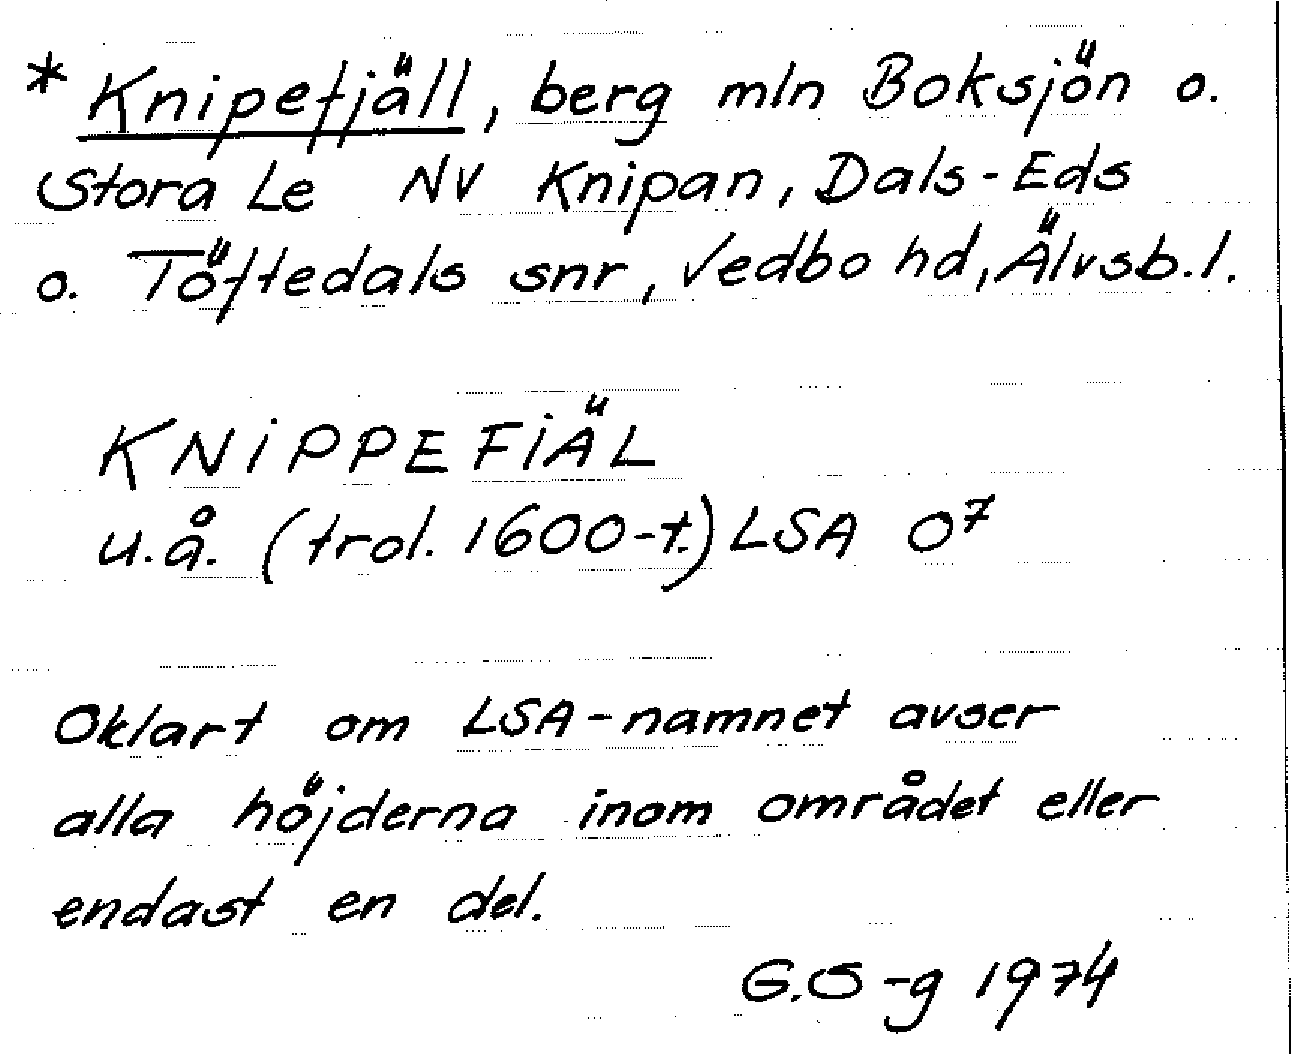 * Knipefjäll, berg mln Boksjön o.
Stora Le NV Knipan, Dals-Eds
o. Töftedals snr, Vedbo hd, Älvsb.l.
KNIPPEFIÄL
u.å. (trol. 1600-t.) LSA O7
Oklart om LSA-namnet avser
alla höjderna inom området eller
endast en del.
G.S-g 1974